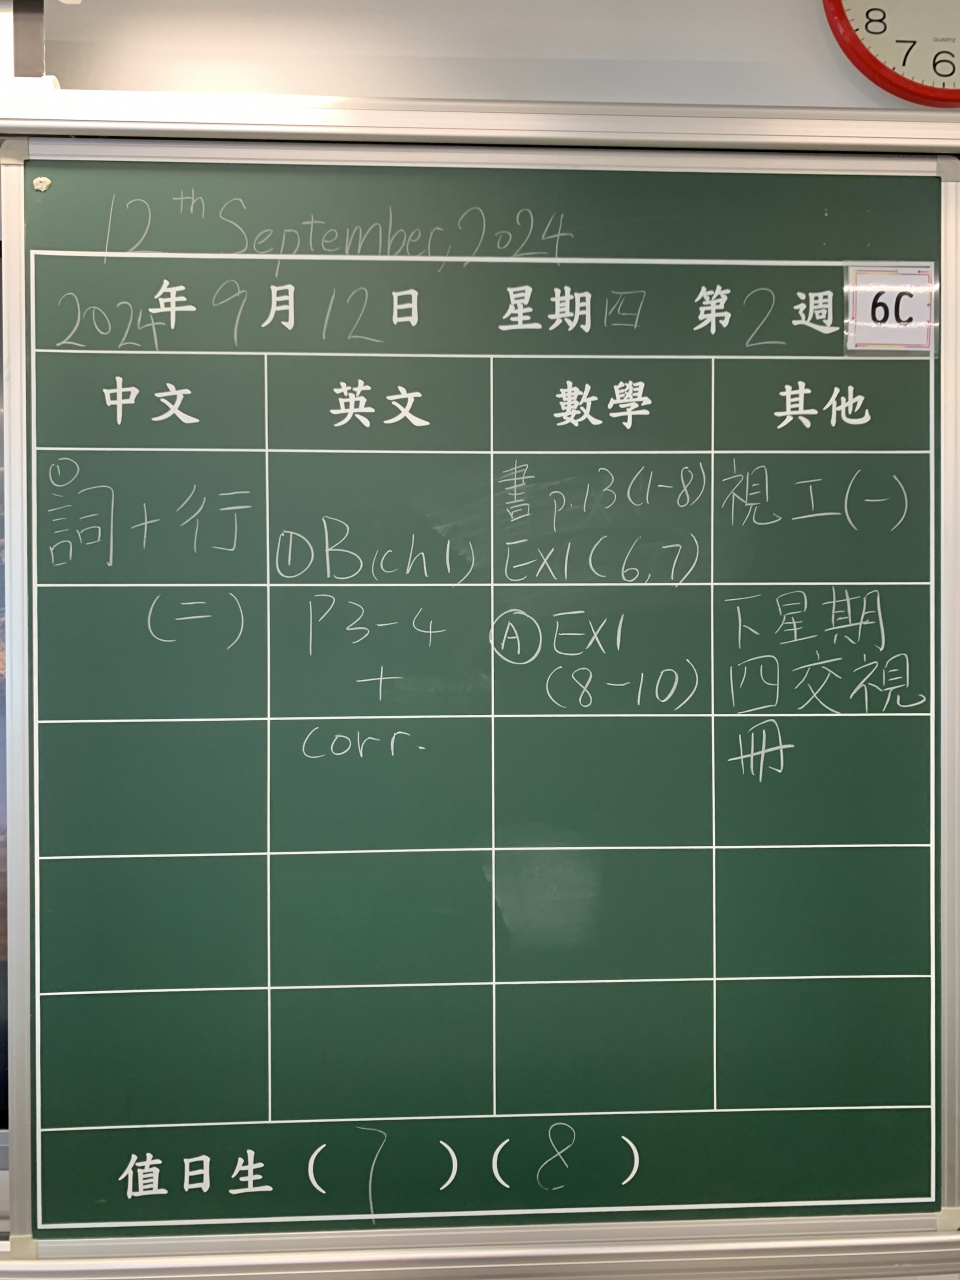 8
7
6
QUARTZ
12th September, 2024
2024年9月12日 星期四 第2週 6C
中文 英文 數學 其他
①
詞+行
(二)
①B(ch1)
P3-4
+
corr.
書 p.13(1-8)
EX1(6,7)
Ⓐ EX1
(8-10)
視工(一)
下星期
四交視
冊
值日生(7)(8)